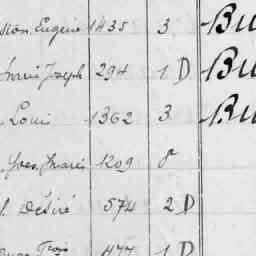 Eugène 1435 3 Bu
Marie Joseph 294 1 D Bu
Louis 1362 3 Bu
Yves Marie 1209 8
Désiré 574 2 D
477 1 D